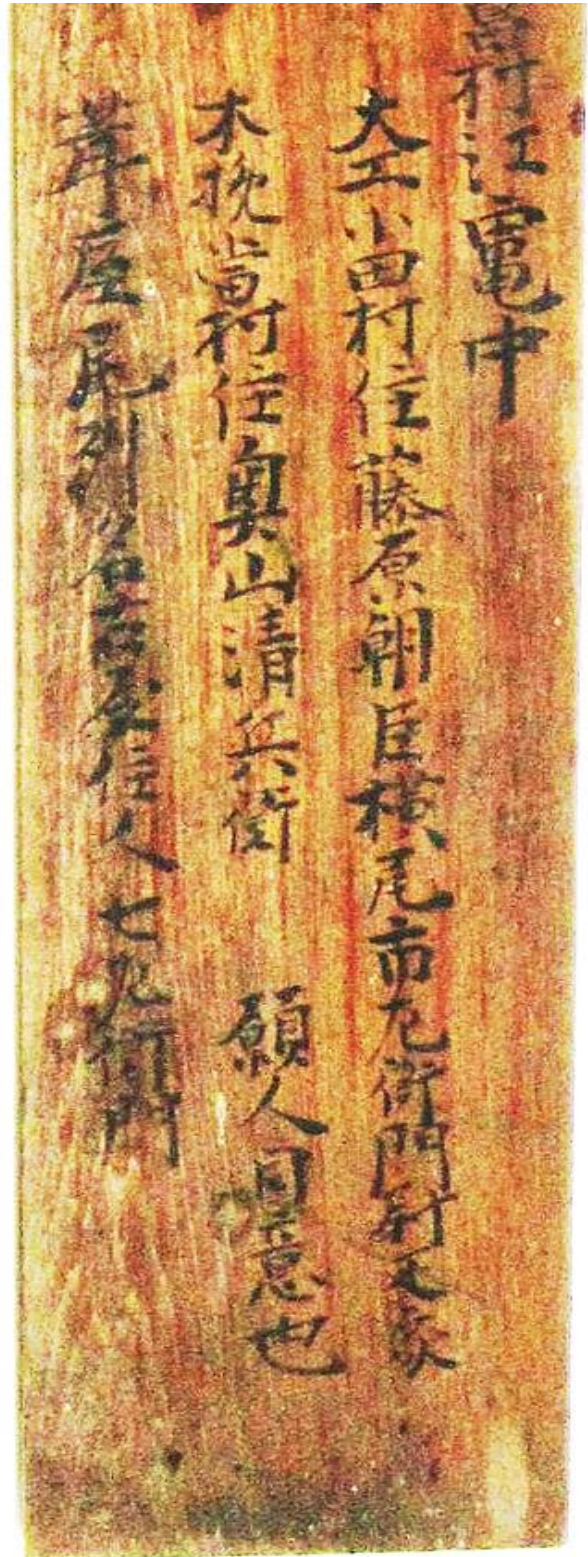 村江竃中
大工小田村住藤原朝臣横尾市左衛門
木挽當村住奥山清兵衛　願人同意也
葺屋尾州名古屋住人七左衛門